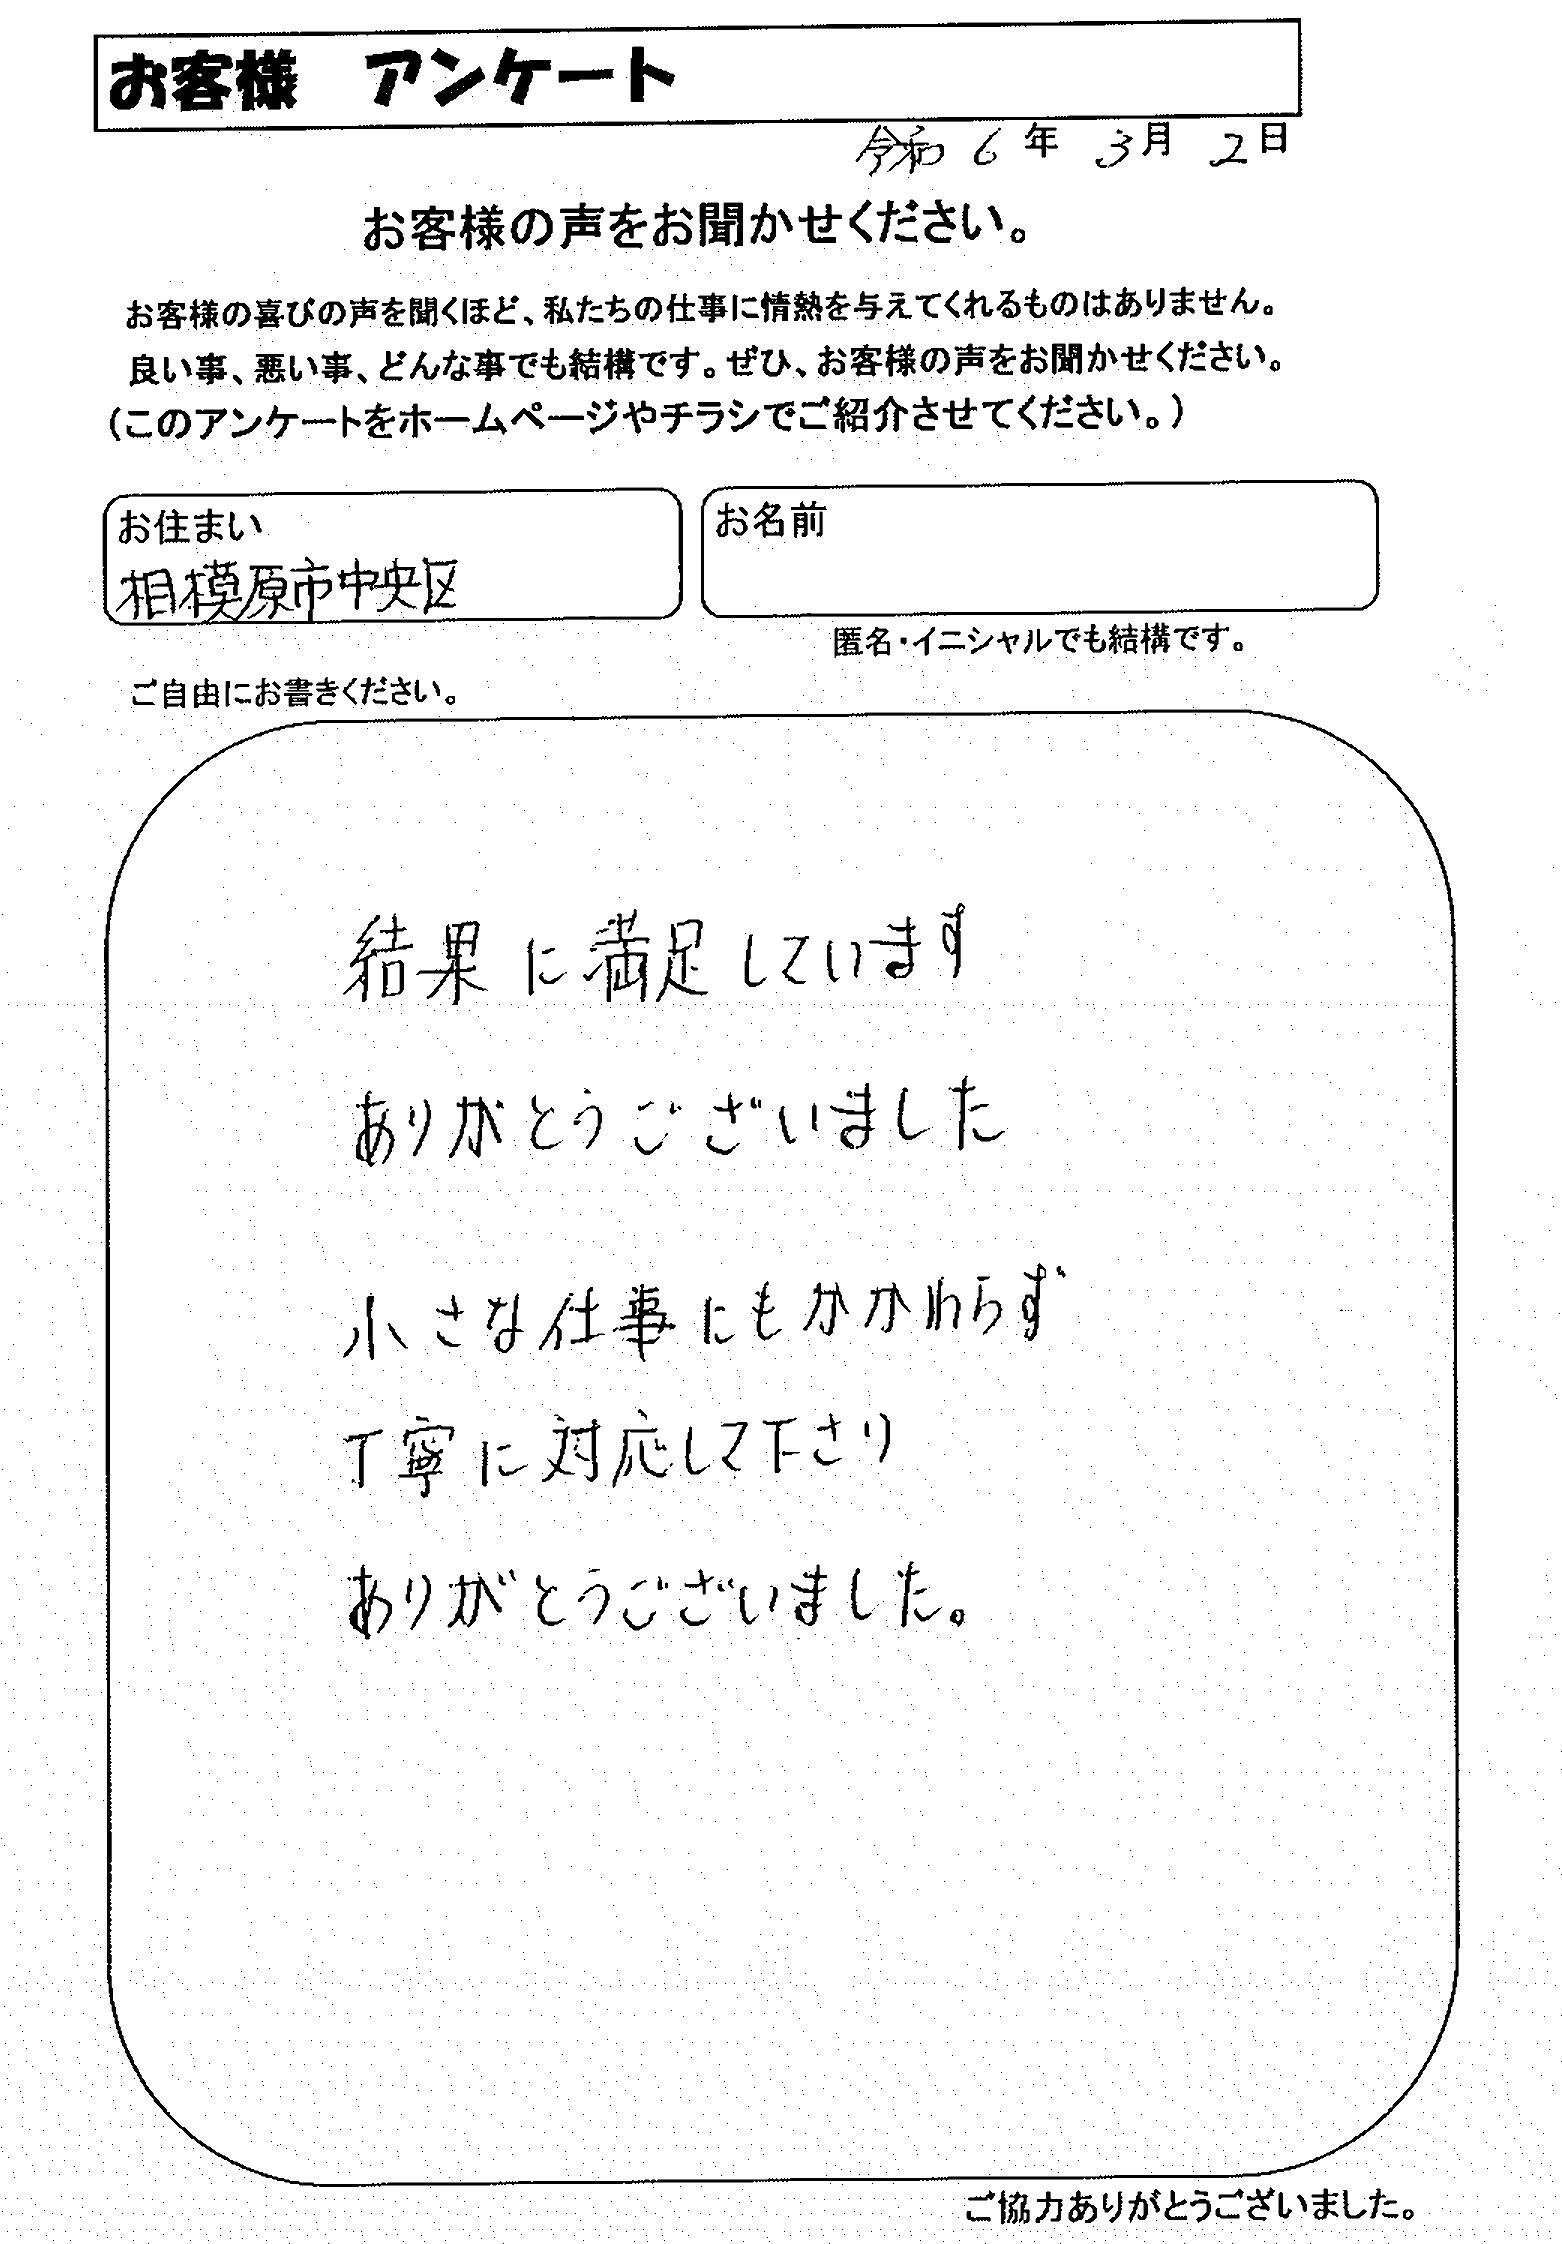 お客様　アンケート
令和 6 年 3 月 2 日
お客様の声をお聞かせください。
お客様の喜びの声を聞くほど、私たちの仕事に情熱を与えてくれるものはありません。
良い事、悪い事、どんな事でも結構です。ぜひ、お客様の声をお聞かせください。
（このアンケートをホームページやチラシでご紹介させてください。）
お住まい
相模原市中央区
お名前
匿名・イニシャルでも結構です。
ご自由にお書きください。
結果に満足しています
ありがとうございました
小さな仕事にもかかわらず
丁寧に対応して下さり
ありがとうございました。
ご協力ありがとうございました。